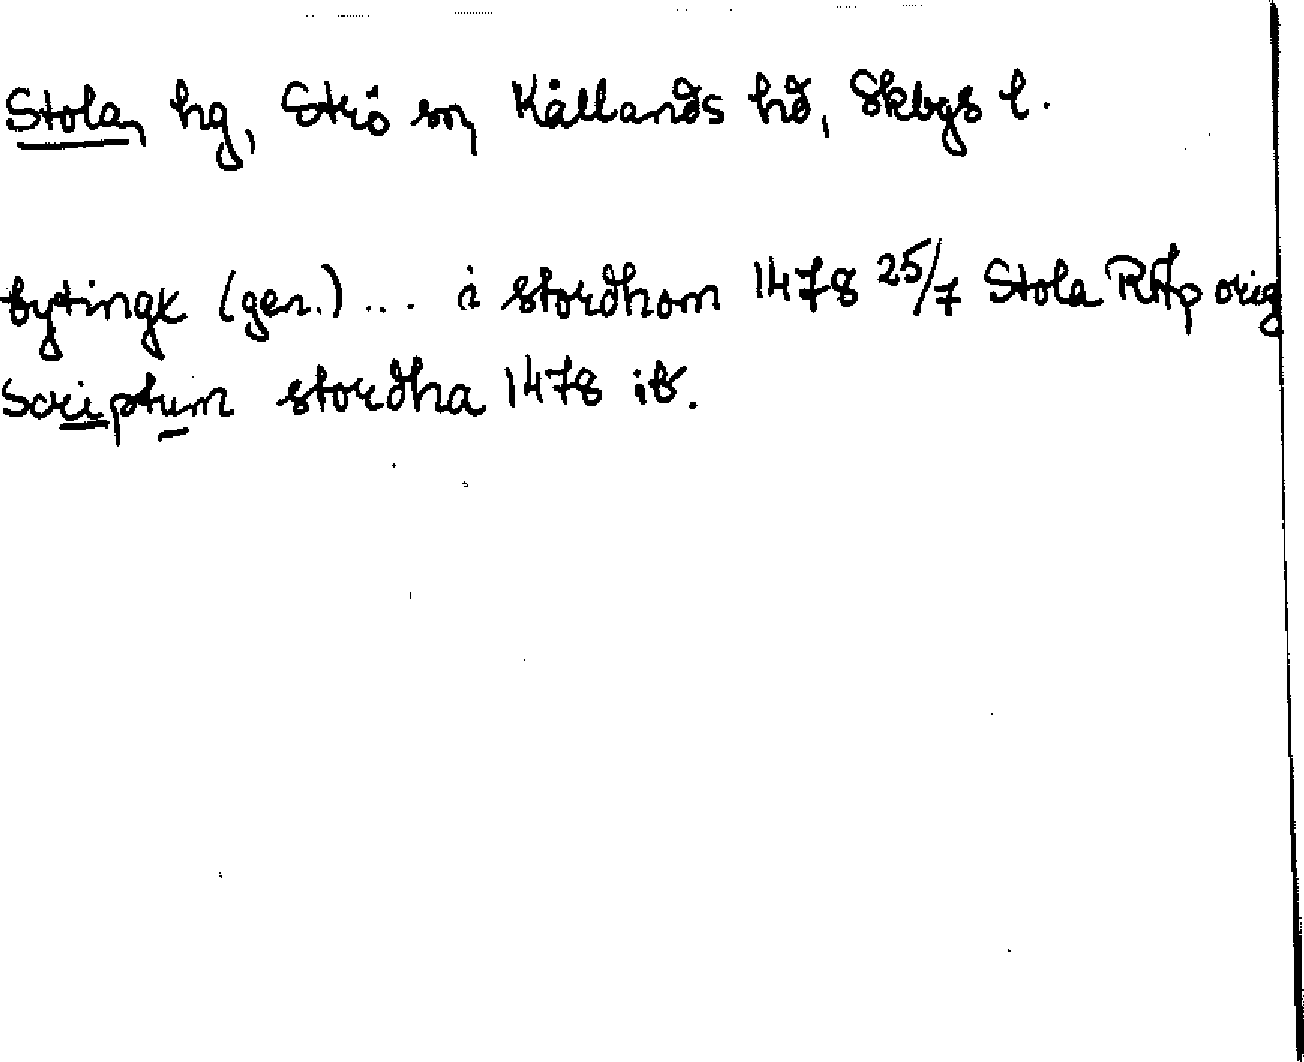 Stola, hg, Strö sn, Kållands hd, Skbgs l.
bytingx (gen.) ... i stordhom 1478 25/7 Stola RAp orig
Scriptum stordha 1478 ib.